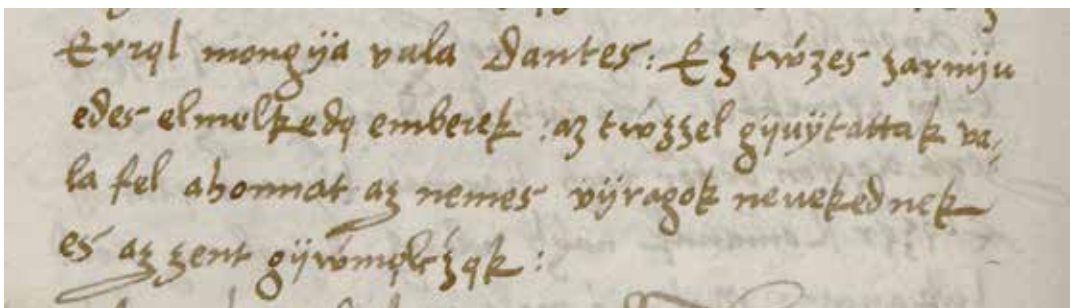 Errql mongÿa vala Dantes: Ez twʹzes zarnÿu
edes elmelkedq emberek : az twzzel gÿuÿtattak va⸗
la fel ahonnat az nemes vÿragok neuekednek
es az zent gÿwmqlczqk :